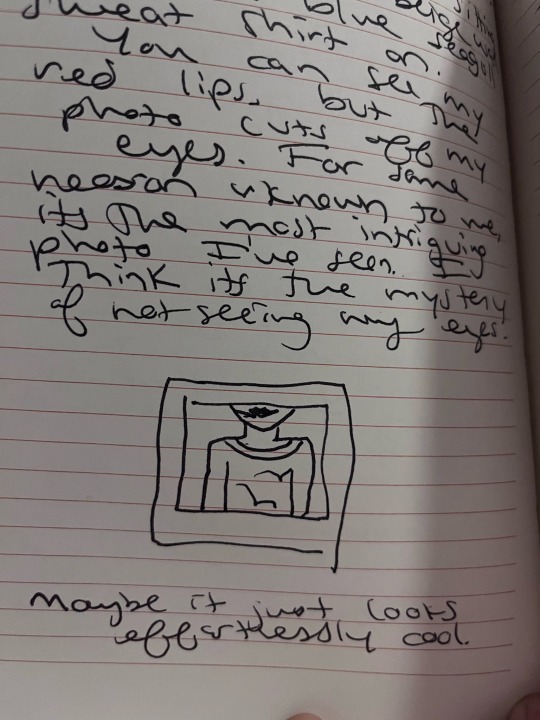 beige
sweat blue
shirt on. seagull
You can see my
red lips, but the
photo cuts off my
eyes. For some
reason uknown to me,
its the most intriguing
photo I've seen. I
Think its the mystery
of not seeing my eyes.
Maybe it just looks
effortlessly cool.